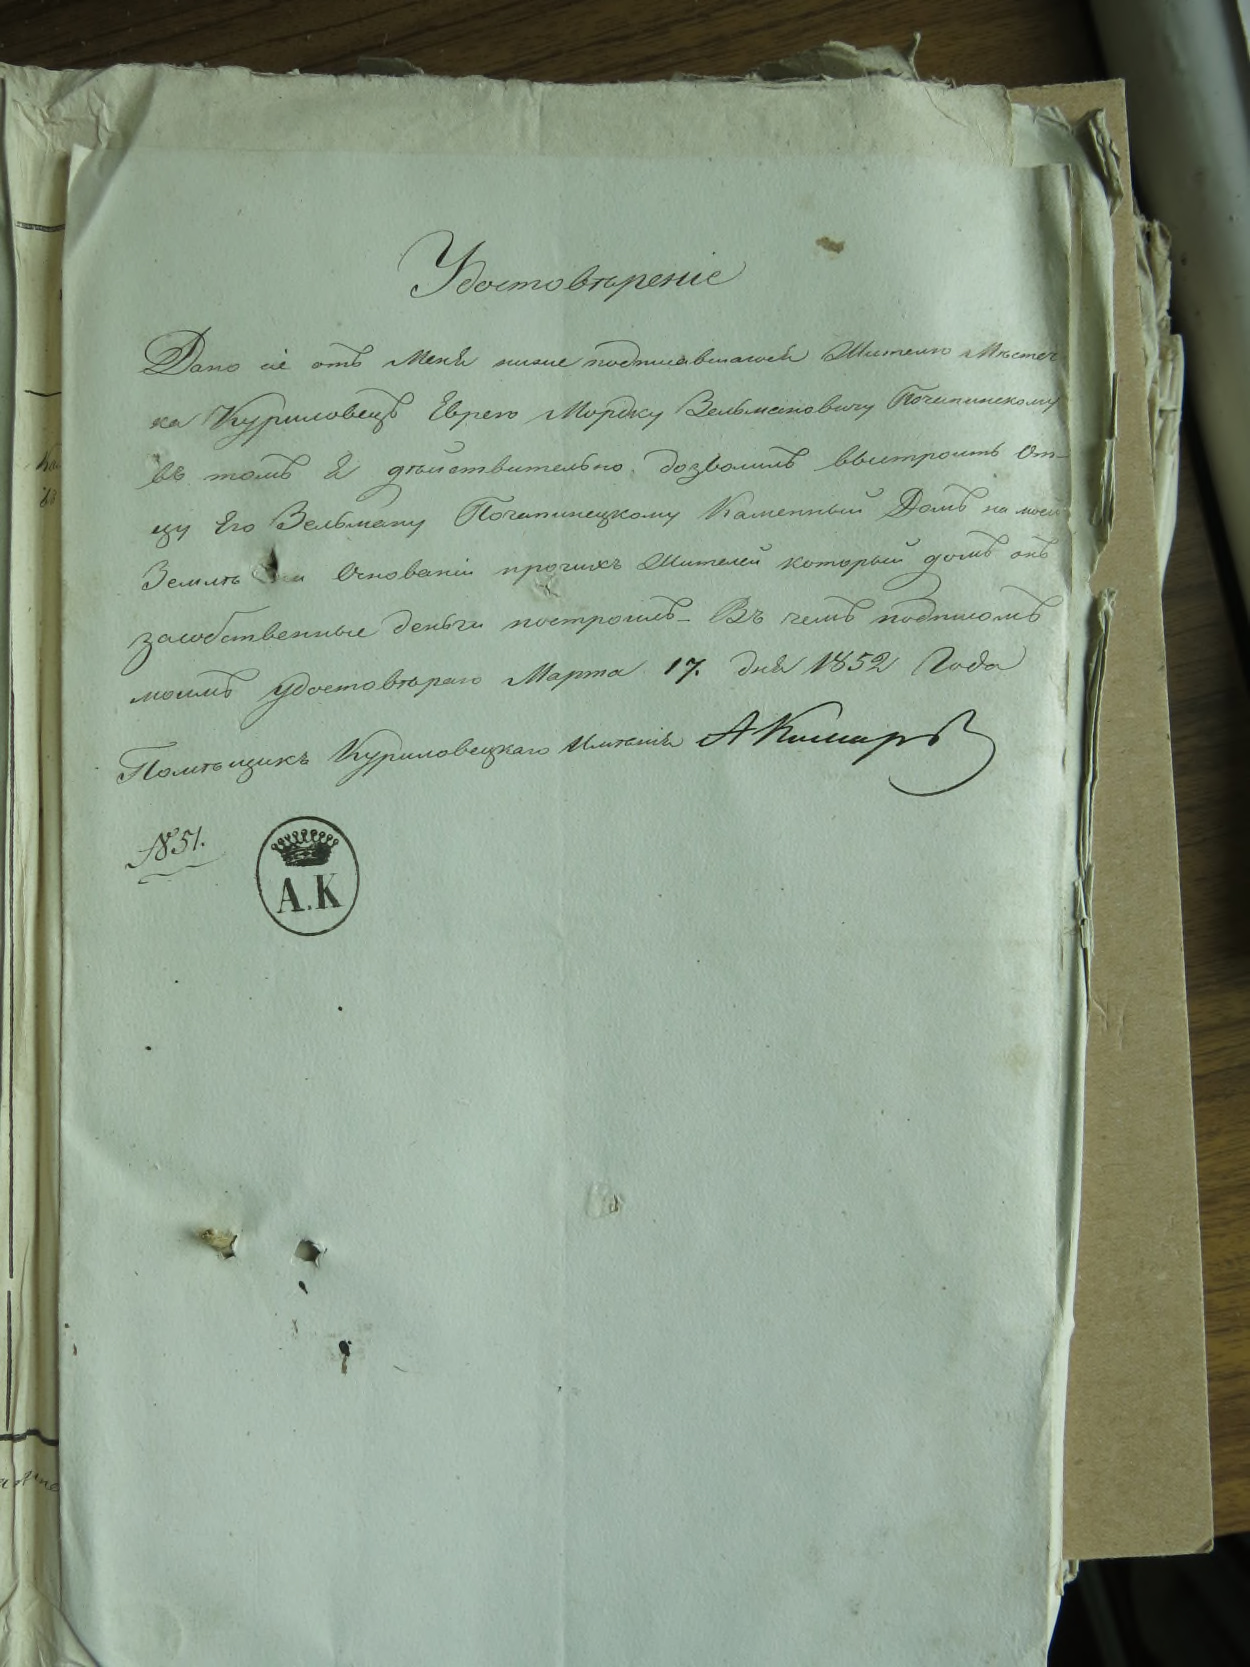 Удостовѣреніе
Дано сіе отъ Меня ниже подписавшагося Жителю Мѣстеч
ка Куриловецъ Еврею Мордку Вельмановичу Почапинскому
въ томъ Я дѣйствительно дозволилъ выстроить От-
цу Его Зельману Почапинецкому Каменный Домъ на моей
Землѣ на Основаніи прочихъ Жителей который домъ онъ
засобственные деньги построилъ – Въ чемъ подписомъ
моимъ удостовѣряю Марта 17. дня 1852 Года
Помѣщикъ Куриловецкаго Имѣнія А Комаръ
№ 51.
А.К